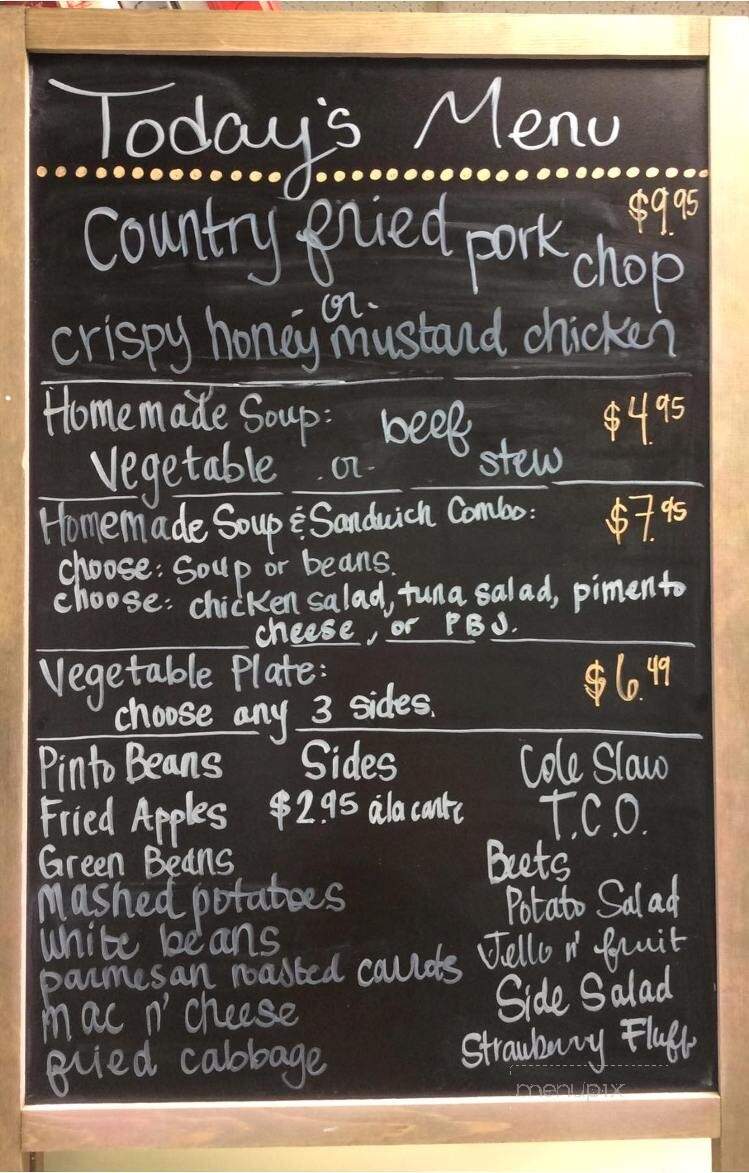 Today's Menu
Country fried pork chop $9.95
-or-
crispy honey mustard chicken
Homemade Soup: beef $4.95
Vegetable -or- stew
Homemade Soup & Sandwich Combo: $7.95
choose: Soup or beans.
choose: chicken salad, tuna salad, pimento
cheese, or PBJ.
Vegetable Plate: $6.49
choose any 3 sides.
Sides
$2.95 àla carte
Pinto Beans
Fried Apples
Green Beans
mashed potatoes
white beans
parmesan roasted carrots
mac n' cheese
fried cabbage
Cole Slaw
T.C.O.
Beets
Potato Salad
Jello n' fruit
Side Salad
Strawberry Fluff
menupix